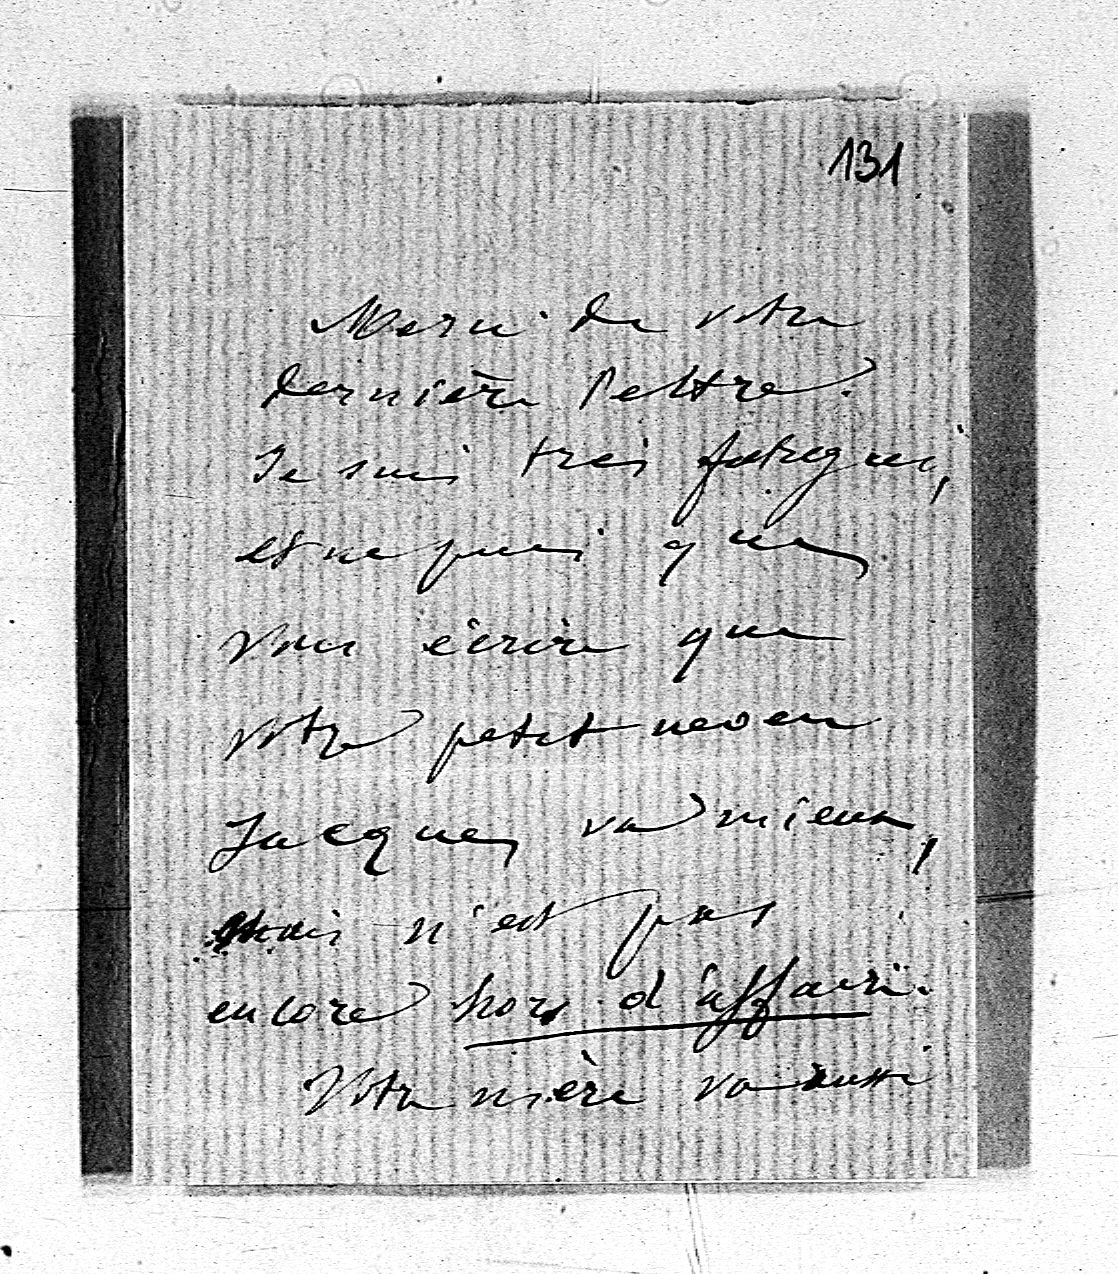 131
Merci de votre
dernière lettre.
Je suis très fatigué,
et ne puis que
vous écrire que
votre petit neveu
Jacques va mieux,
mais n'est pas
encore hors d'affaire.
Votre mère va aussi